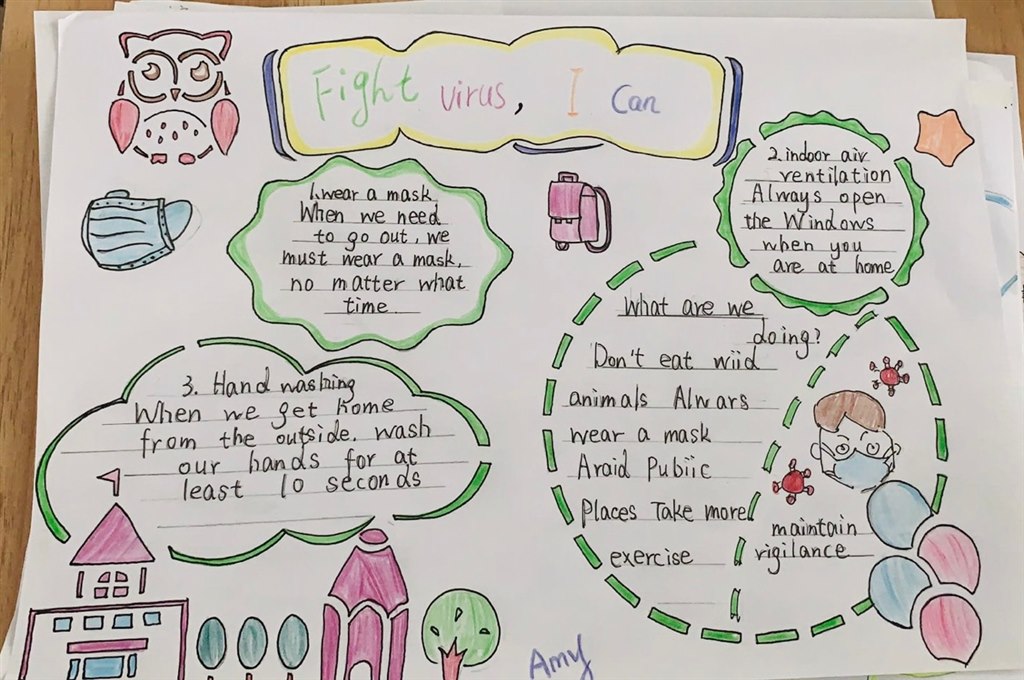 Fight virus, I Can
1.wear a mask
When we need
to go out, we
must wear a mask,
no matter what
time.
2.indoor air
ventilation
Always open
the Windows
when you
are at home
3. Hand washing
When we get home
from the outside. wash
our hands for at
least 10 seconds
What are we
doing?
Don't eat wiid
animals Alwars
wear a mask
Araid Pubiic
Places Take more
exercise
maintain
vigilance
Amy